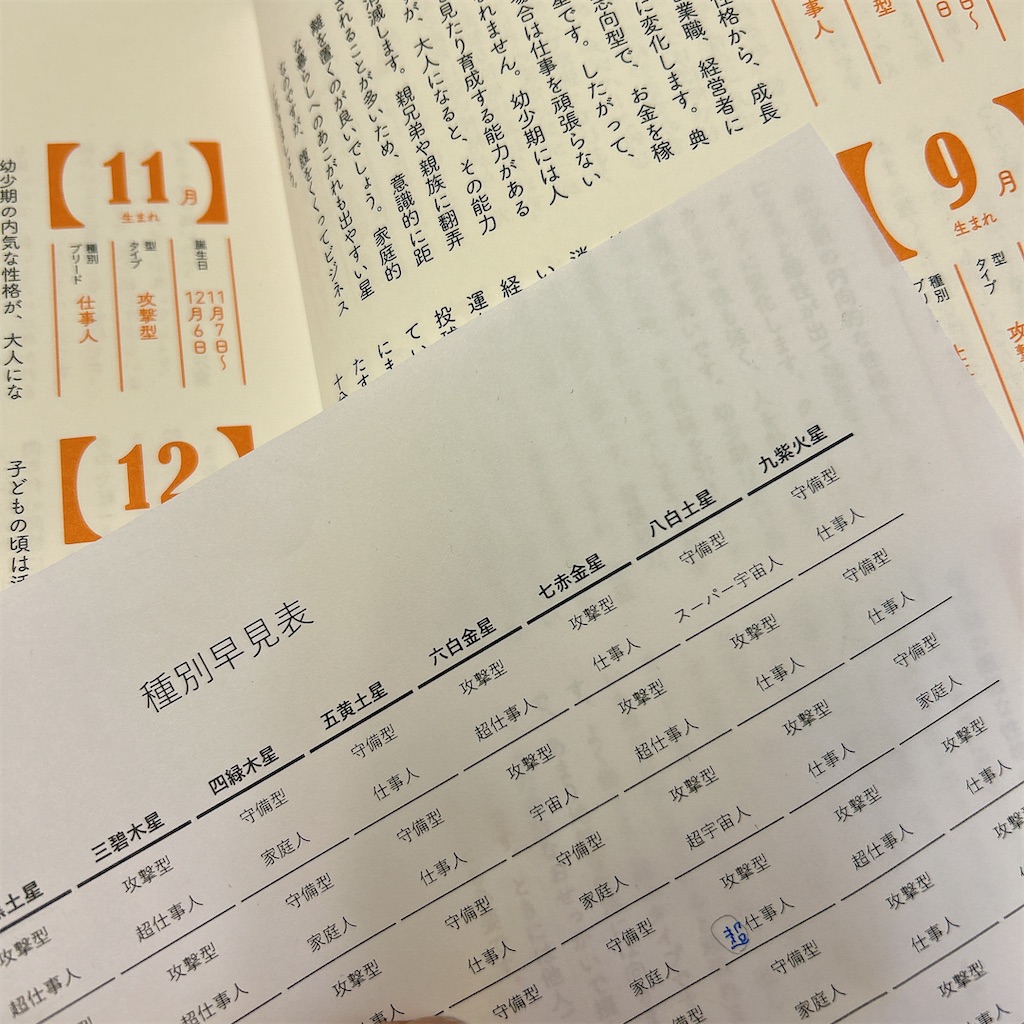 性格から、成長
業職、経営者に
に変化します。典
志向型で、お金を稼
型です。したがって、
場合は仕事を頑張らない
れません。幼少期には人
見たり育成する能力がある
が、大人になると、その能力
消滅します。親兄弟や親族に翻弄
されることが多いため、意識的に距
離を置くのが良いでしょう。家庭的
な暮らしへのあこがれも出やすい星
なのですが、
くくってビジネス
仕事人
型
【9月】
生まれ
型 タイプ
種別
【11月】
生まれ
誕生日 11月7日〜12月6日
型 タイプ 攻撃型
種別 ブリード 仕事人
幼少期の内気な性格が、大人にな
【12
子どもの頃は
種別早見表
土星 三碧木星 四緑木星 五黄土星 六白金星 七赤金星 八白土星 九紫火星
攻撃型 攻撃型 守備型 守備型 攻撃型 攻撃型 守備型 守備型
超仕事人 超仕事人 家庭人 仕事人 超仕事人 仕事人 スーパー宇宙人 仕事人
攻撃型 守備型 守備型 攻撃型 攻撃型 攻撃型 守備型
超仕事人 家庭人 仕事人 宇宙人 超仕事人 仕事人 仕事人
攻撃型 守備型 守備型 攻撃型 攻撃型 守備型
仕事人 仕事人 家庭人 超宇宙人 仕事人 家庭人
守備型 守備型 攻撃型 攻撃型 攻撃型
家庭人 超仕事人 超仕事人 仕事人
守備型 攻撃型
家庭人 仕事人
攻撃型